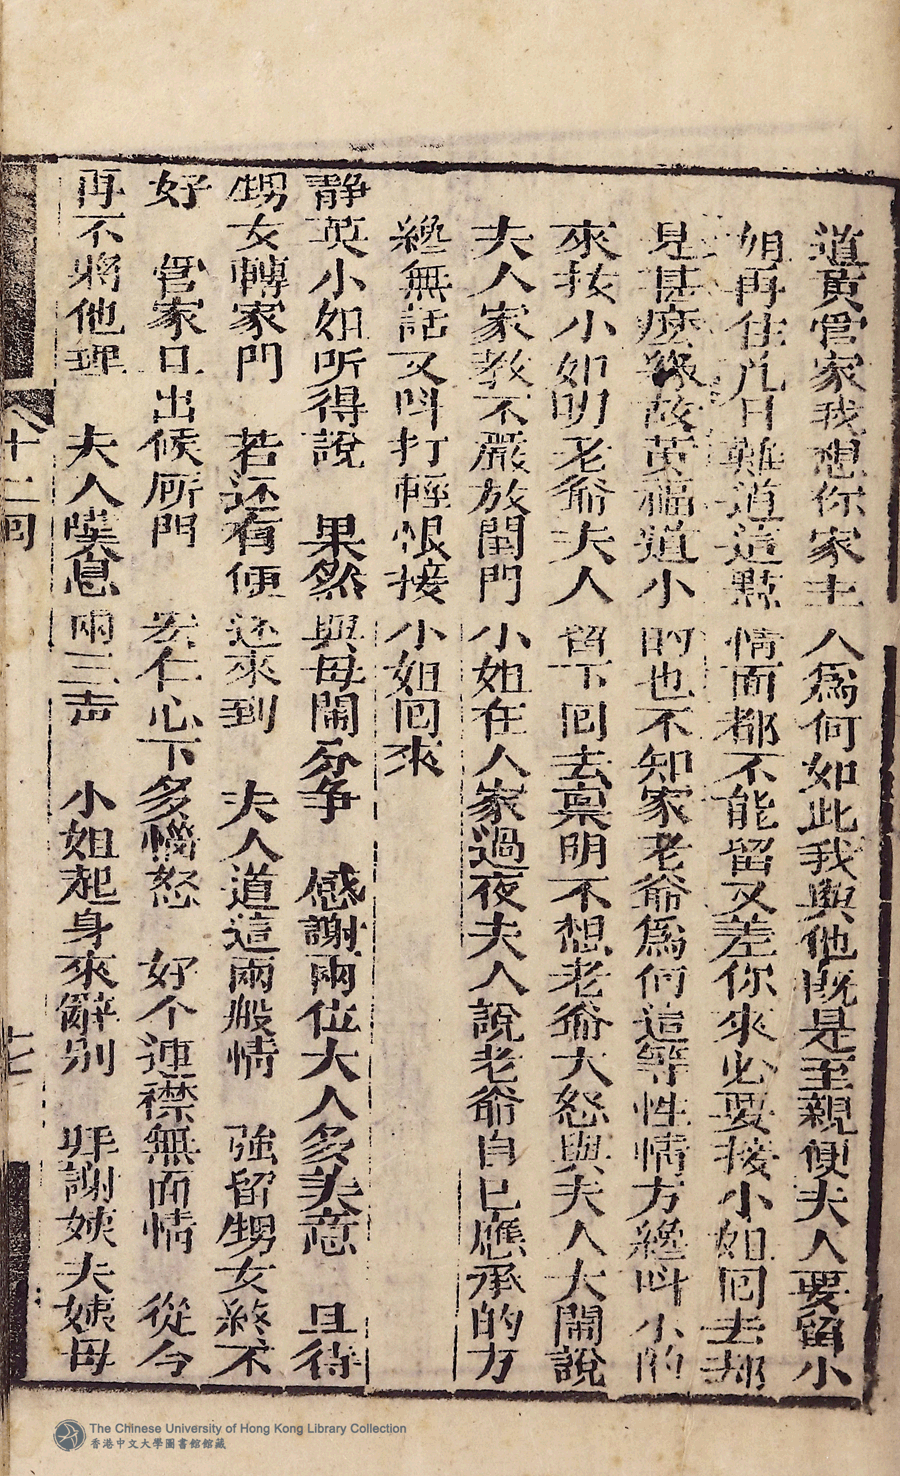 道黄管家我想你家主人為何如此我與他既是至親便夫人要留小
姐再住几日難道這點情面都不能留又差你來必要接小姐回去却
見甚麽緣故英福道小的也不知家老爺為何這等性情方纔呌小的
來接小姐明老爺夫人留下囘去禀明不想老爺大怒與夫人大鬧說
夫人家教不嚴放閨門小姐在人家過夜夫人說老爺自己應承的方
纔無話又呌打轎恨接小姐囘來
静英小姐听得說 果然與母鬧分争 感謝兩位大人多美意 且待
甥女轉家門 若还有便还來到 夫人道這兩般情 強留甥女終不
好 管家旦出候所門 宏仁心下多惱怒 好个連襟無面情 從今
再不將他理 夫人嘆息兩三声 小姐起身來辭别 拜謝姨夫姨母
十二囘
十七
The Chinese University of Hong Kong Library Collection
香港中文大學圖書館館藏